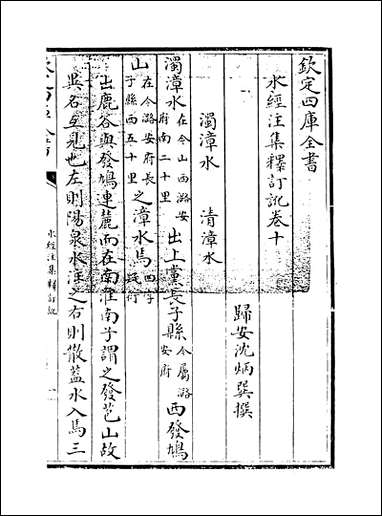 欽定四庫全書
水經注集釋訂訛卷十
歸安沈炳巽撰
濁漳水 清漳水
濁漳水在今山西潞安府南二十里出上黨長子縣今屬潞安府西發鳩
山在今潞安府長子縣西五十里之漳水焉四字衍
出鹿谷與發鳩連麓而在南淮南子謂之發苞山故
異名互見也左則陽泉水注之右則散蓋水入焉三
水經注集釋訂訛